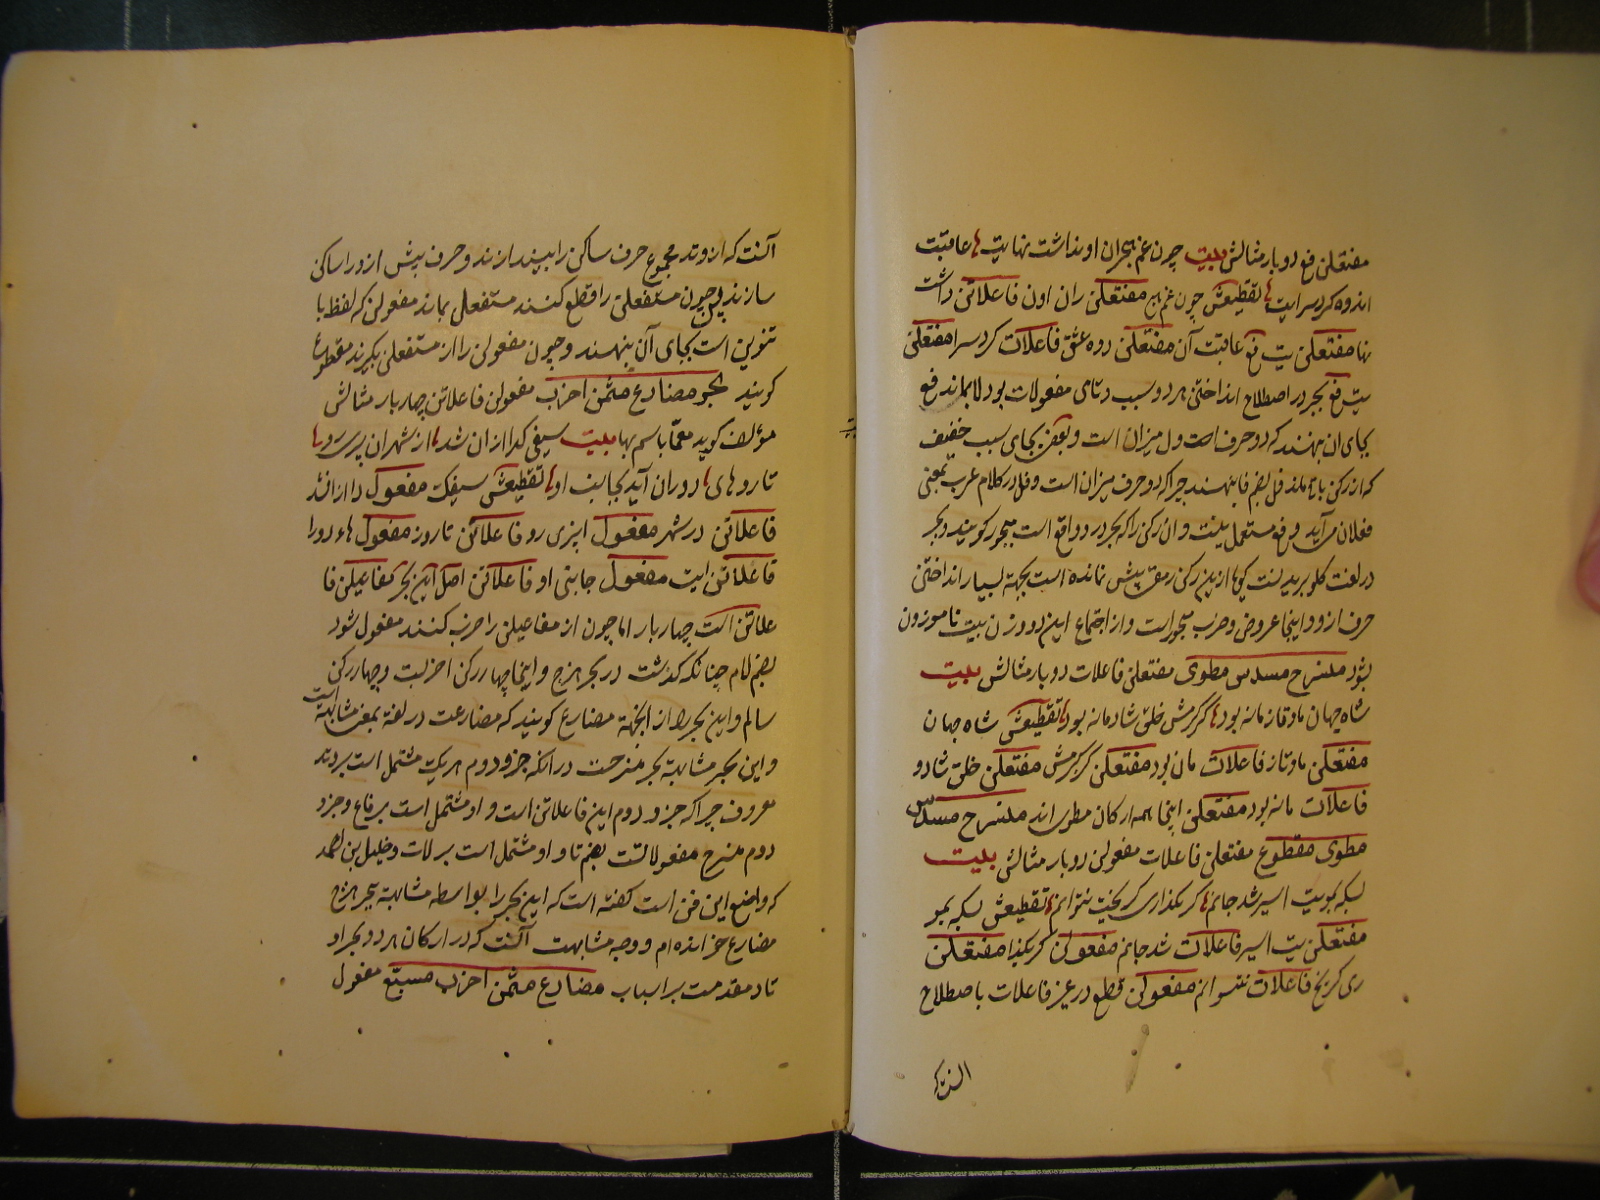 مفتعلن فع دوبار مثالش بیت چون غم هجران او نداشت نهایت عاقبت
اندوه کرد سرایت تقطیعش چون غم هج مفتعلن ران او ن فاعلاتن داشت
نها مفتعلن یت فع عاقبت آن مفتعلن دوه عشق فاعلات کرد سرا مفتعلن
یت فع نحر در اصطلاح انداختن هر دو سبب و تای مفعولات بود لا بماند فع
بجای ان بنهند که دو حرف است و اول میزان است و بعضی بجای سبب خفیف
که از رکن باقی ماند فل بضم فا بنهند چرا که دو حرف میزان است و فل در کلام عرب بمعنی
فلان می آید و فع مستعمل نیست و ان رکن را که نحر در و واقع است منحور کویند و نحر
در لغت کلو بریدنست کویا ازین رکن رمق بیش نمانده است بجهة بسیار انداختن
حرف ازو و اینجا عروض و ضرب منحور است و از اجتماع این دو وزن بیت ناموزون
نشود منسرح مسدس مطوی مفتعلن فاعلات دوبار مثالش بیت
شاه جهان باد تا زمانه بود کز کرمش خلق شادمانه بود تقطیعش شاه جهان
مفتعلن باد تا ز فاعلات مان بود مفتعلن کز کرمش مفتعلن خلق شاد و
فاعلات مانه بود مفتعلن اینجا همه ارکان مطوی اند منسرح مسدس
مطوی مقطوع مفتعلن فاعلات مفعولن دوبار مثالش بیت
بسکه بمویت اسیر شد جانم کر بکذاری کریخت نتوانم تقطیعش بسکه بمو
مفتعلن یت اسیر فاعلات شد جانم مفعولن کر بکذا مفتعلن
ری کریخ فاعلات نتوانم مفعولن قطع در غیر فاعلات باصطلاح
آنست که
آنست که از وتد مجموع حرف ساکن را بیندازند و حرف پیش ازو را ساکن
سازند پس چون مستفعلن را قطع کنند مستفعل بماند مفعولن که لفظ با
تنوین است بجای آن بنهند و چون مفعولن را از مستفعلن بکیرند مقطوع
کویند بحر مضارع مثمن اخرب مفعول فاعلاتن چهار بار مثالش
مؤلف کوید معما باسم بها بیت سیفی کدا ازان شد از شهران پری رو
تا روهای دوران آید بجانب او تقطیعش سیفیک مفعول دا ازان شد
فاعلاتن در شهر مفعول اپزی رو فاعلاتن تا روز مفعول هاء دورا
فاعلاتن ایت مفعول جانبی او فاعلاتن اصل این بحر مفاعیلن فا
علاتن است چهار بار اما چون از مفاعیلن را خرب کنند مفعول شود
بضم لام چنانکه کذشت در بحر هزج و اینجا چهار رکن اخربست و چهار رکن
سالم و این بحر را از انجهة مضارع کویند که مضارعت در لغة بمعنی مشابهت است
و این بحر مشابهة بحر منسرحست در انکه جزو دوم هر یک مشتمل است بر وتد
مفروق چرا که جزو دوم این فاعلاتن است و او مشتمل است بر فاع و جزو
دوم منسرح مفعولاتست بضم تا و او مشتمل است بر لات و خلیل بن احمد
که واضع این فن است کفته است که این بحر را بواسطه مشابهة بحر هزج
مضارع خوانده ام و وجه مشابهت آنست که در ارکان هر دو بحر او
تاد مقدمست بر اسباب مضارع مثمن اخرب مسبغ مفعول